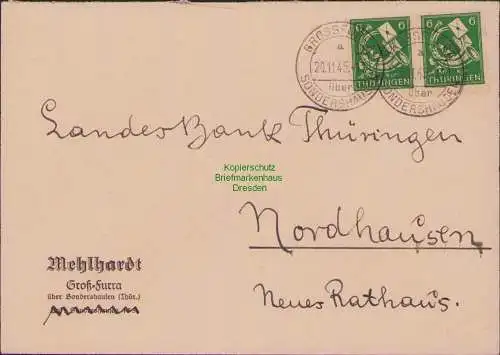 6 6
THÜRINGEN
6 6
THÜRINGEN
a
20.11.45
über
SONDERSHAUSEN
a
über
SONDERSHAUSEN
Landes Bank Thüringen
Kopierschutz
Briefmarkenhaus
Dresden
Nordhausen
Neues Rathaus.
Mehlhardt
Groß-Furra
über Sondershausen (Thür.)